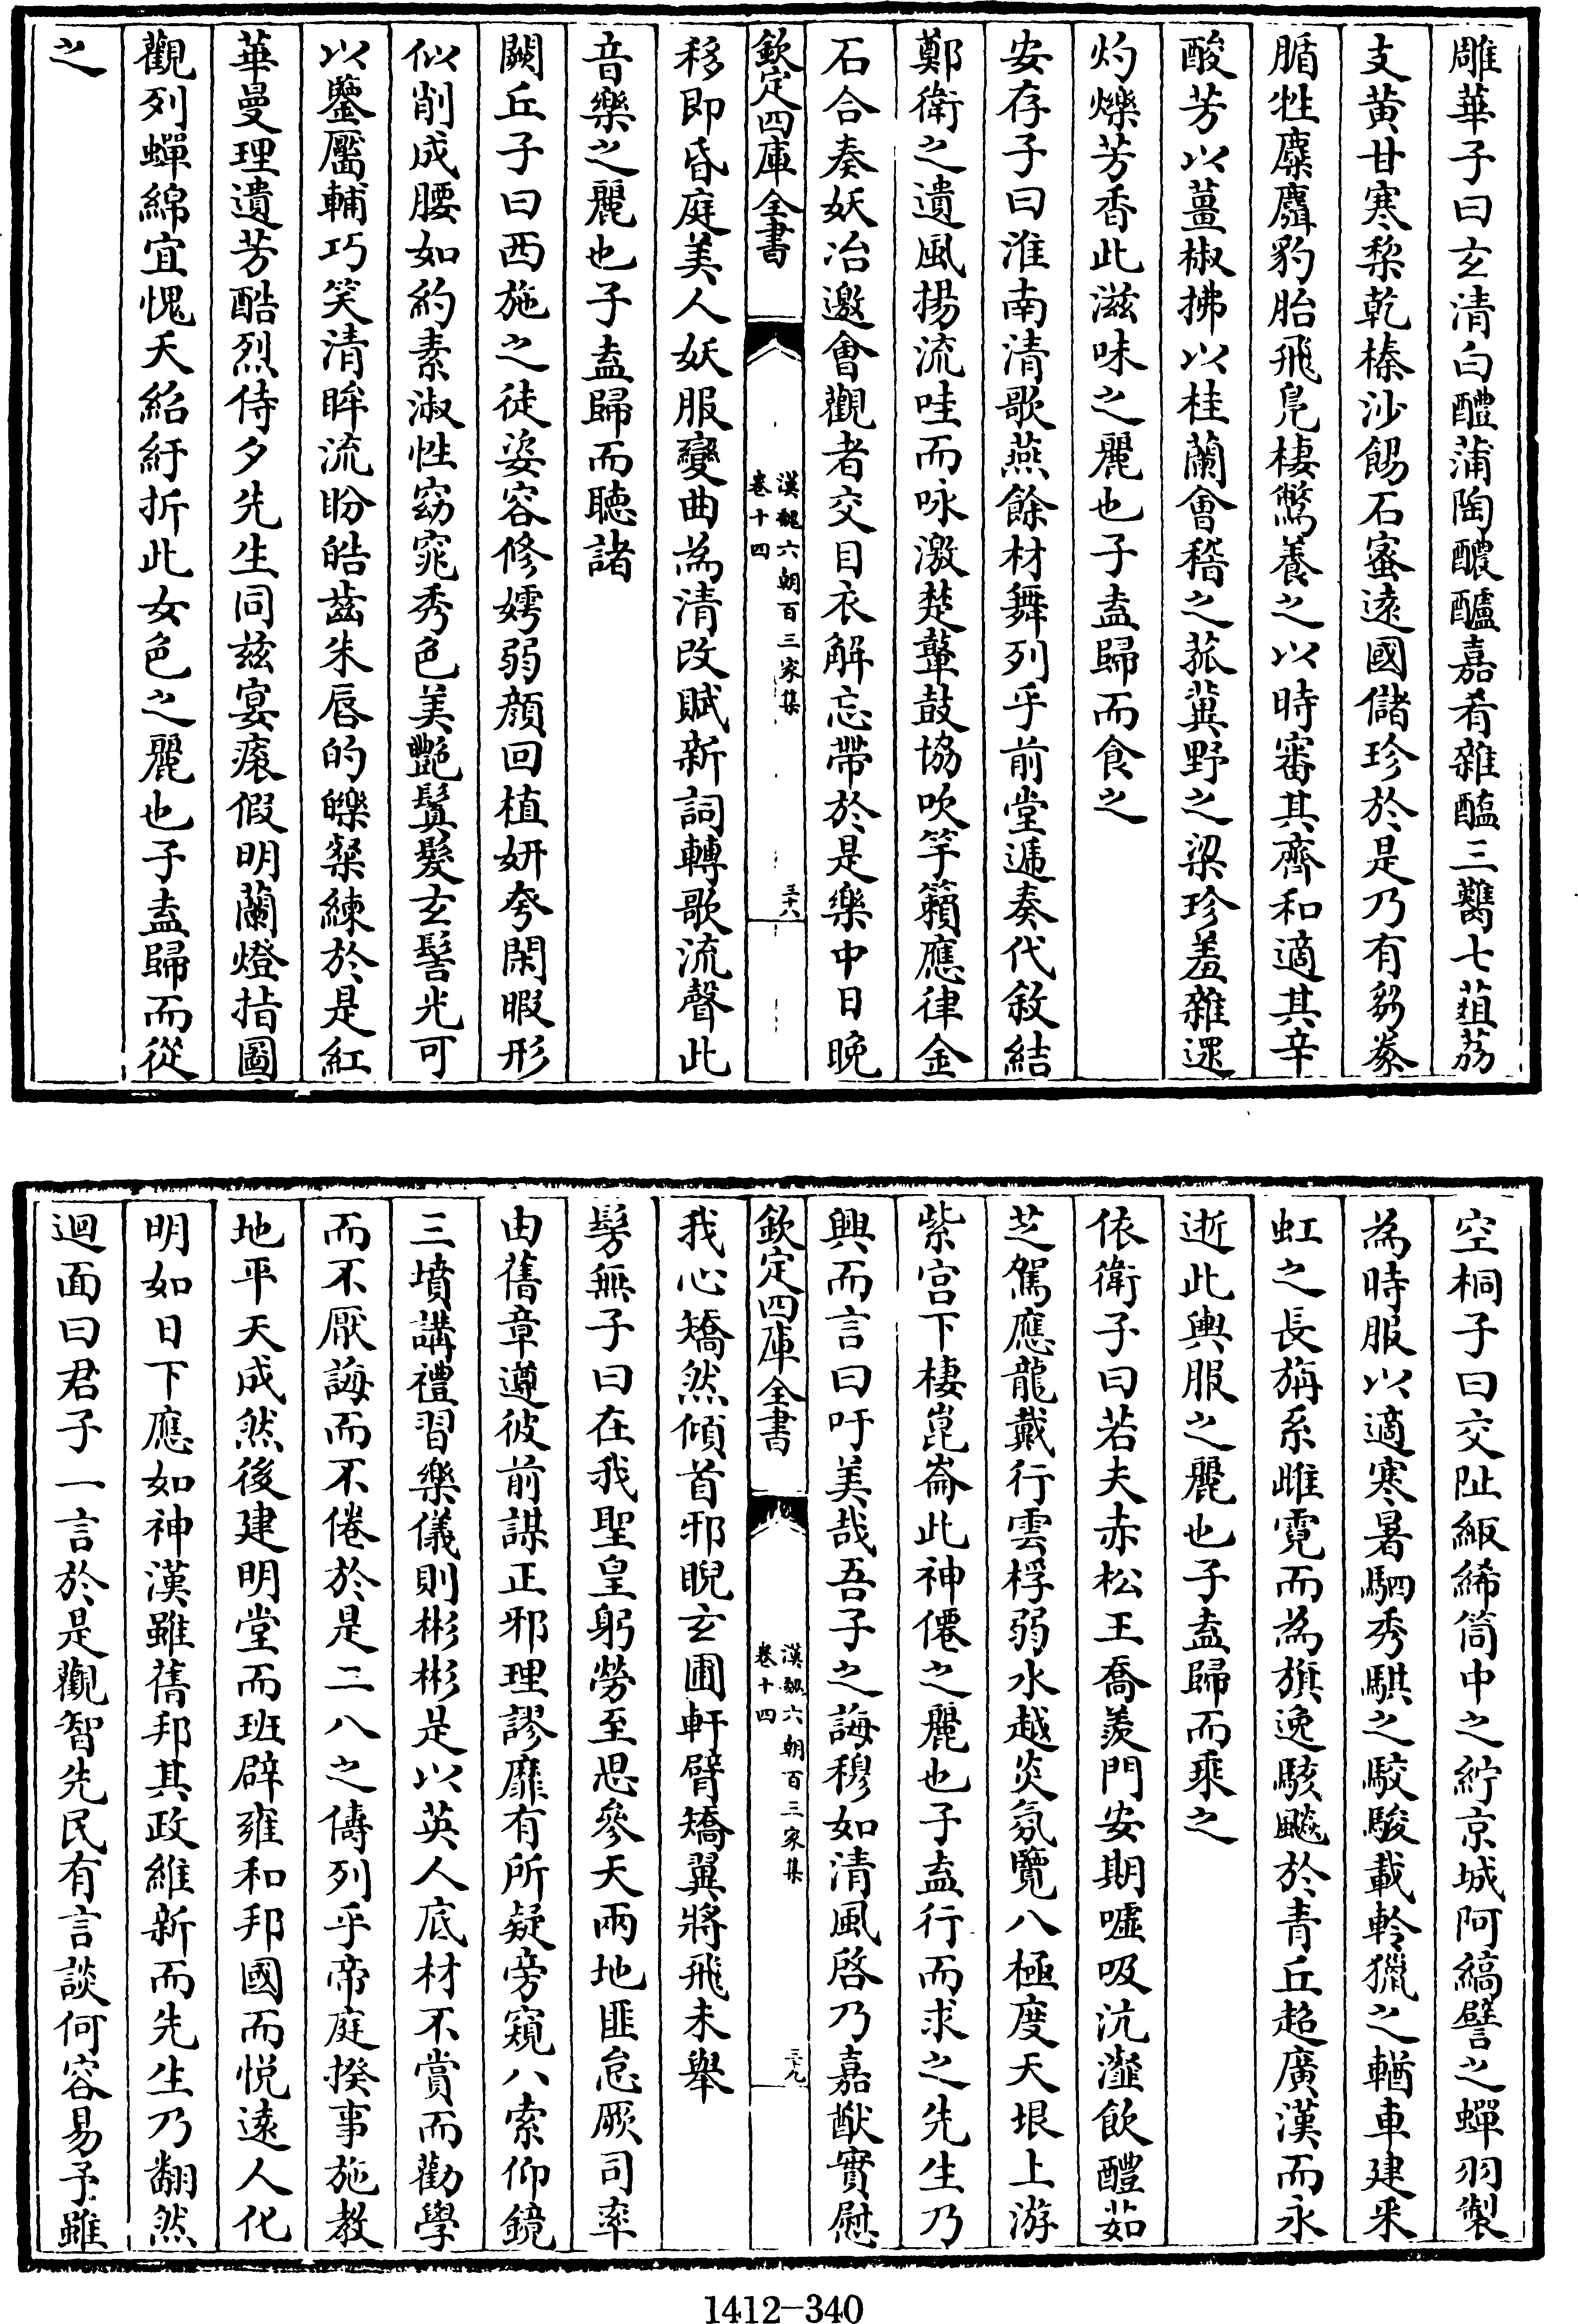 雕華子曰玄清白醴蒲陶醲醽嘉肴雜醢三臡七葅荔
支黃甘寒棃乾榛沙餳石蜜遠國儲珍於是乃有芻豢
腯牲麋麛豹胎飛鳬棲鷩養之以時審其齊和適其辛
酸芳以薑椒拂以桂蘭會稽之菰冀野之粱珍羞雜遝
灼爍芳香此滋味之麗也子盍歸而食之
安存子曰淮南清歌燕餘材舞列乎前堂遞奏代敘結
鄭衛之遺風揚流哇而咏激楚鼙鼓協吹竽籟應律金
石合奏妖冶邀會觀者交目衣解忘帶於是樂中日晚
欽定四庫全書
漢魏六朝百三家集
卷十四
三十八
移即昏庭美人妖服變曲為清改賦新詞轉歌流聲此
音樂之麗也子盍歸而聽諸
闕丘子曰西施之徒姿容修嫮弱顏回植妍夸閑暇形
似削成腰如約素淑性窈窕秀色美艷鬒髮玄髻光可
以鑒靨輔巧笑清眸流盼皓齒朱唇的皪粲練於是紅
華曼理遺芳酷烈侍夕先生同兹宴瘝假明蘭燈指圖
觀列蟬綿宜愧夭紹紆折此女色之麗也子盍歸而從
之
空桐子曰交阯緅絺筒中之紵京城阿縞譬之蟬羽製
為時服以適寒暑駟秀騏之駮駿載軨獵之輶車建采
虹之長旃系雌霓而為旗逸駭飈於青丘超廣漢而永
逝此輿服之麗也子盍歸而乘之
依衛子曰若夫赤松王喬羨門安期噓吸沆瀣飲醴茹
芝駕應龍戴行雲桴弱水越炎氛覽八極度天垠上游
紫宮下棲崑崙此神僊之麗也子盍行而求之先生乃
興而言曰吁美哉吾子之誨穆如清風啓乃嘉猷實慰
欽定四庫全書
漢魏六朝百三家集
卷十四
三十九
我心矯然傾首邪睨玄圃軒臂矯翼將飛未舉
髣無子曰在我聖皇躬勞至思參天兩地匪怠厥司率
由舊章遵彼前謀正邪理謬靡有所疑旁窺八索仰鏡
三墳講禮習樂儀則彬彬是以英人底材不賞而勸學
而不厭誨而不倦於是二八之儔列乎帝庭揆事施教
地平天成然後建明堂而班辟雍和邦國而悅遠人化
明如日下應如神漢雖舊邦其政維新而先生乃翻然
迴面曰君子一言於是觀智先民有言談何容易予雖
1412-340